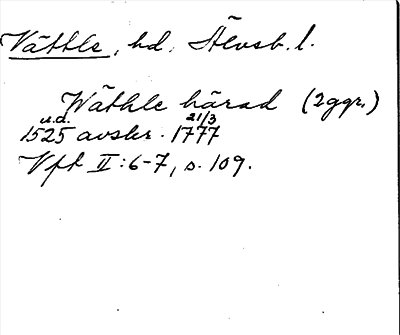 Vättle, hd. Älvsb. l.
Wäthle härad (2ggr.)
u.d. 21/3
1525 avskr. 1777
Vft II:6-7, s. 109.